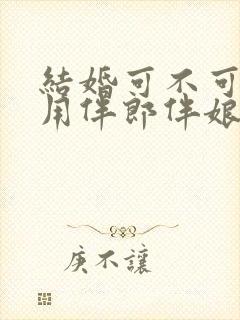 結婚可不可
用伴郎伴娘
庾不讓